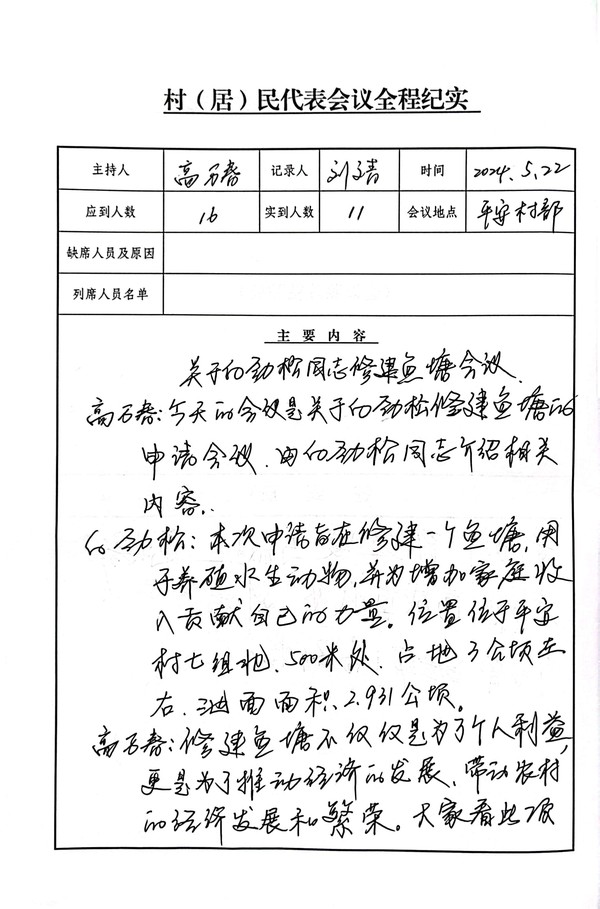 村（居）民代表会议全程纪实
主持人 高万春 记录人 刘清 时间 2024.5.22
应到人数 16 实到人数 11 会议地点 平安村部
缺席人员及原因
列席人员名单
主要内容
关于白劲松同志修建鱼塘会议.
高万春：今天的会议是关于白劲松修建鱼塘的
申请会议.由白劲松同志介绍相关
内容.
白劲松：本次申请旨在修建一个鱼塘,用
于养殖水生动物,并为增加家庭收
入贡献自己的力量。位置位于平安
村七组地.500米处.占地3公顷左
右.水面面积2.931公顷。
高万春：修建鱼塘不仅仅是为了个人利益,
更是为了推动经济的发展、带动农村
的经济发展和繁荣。大家看此项